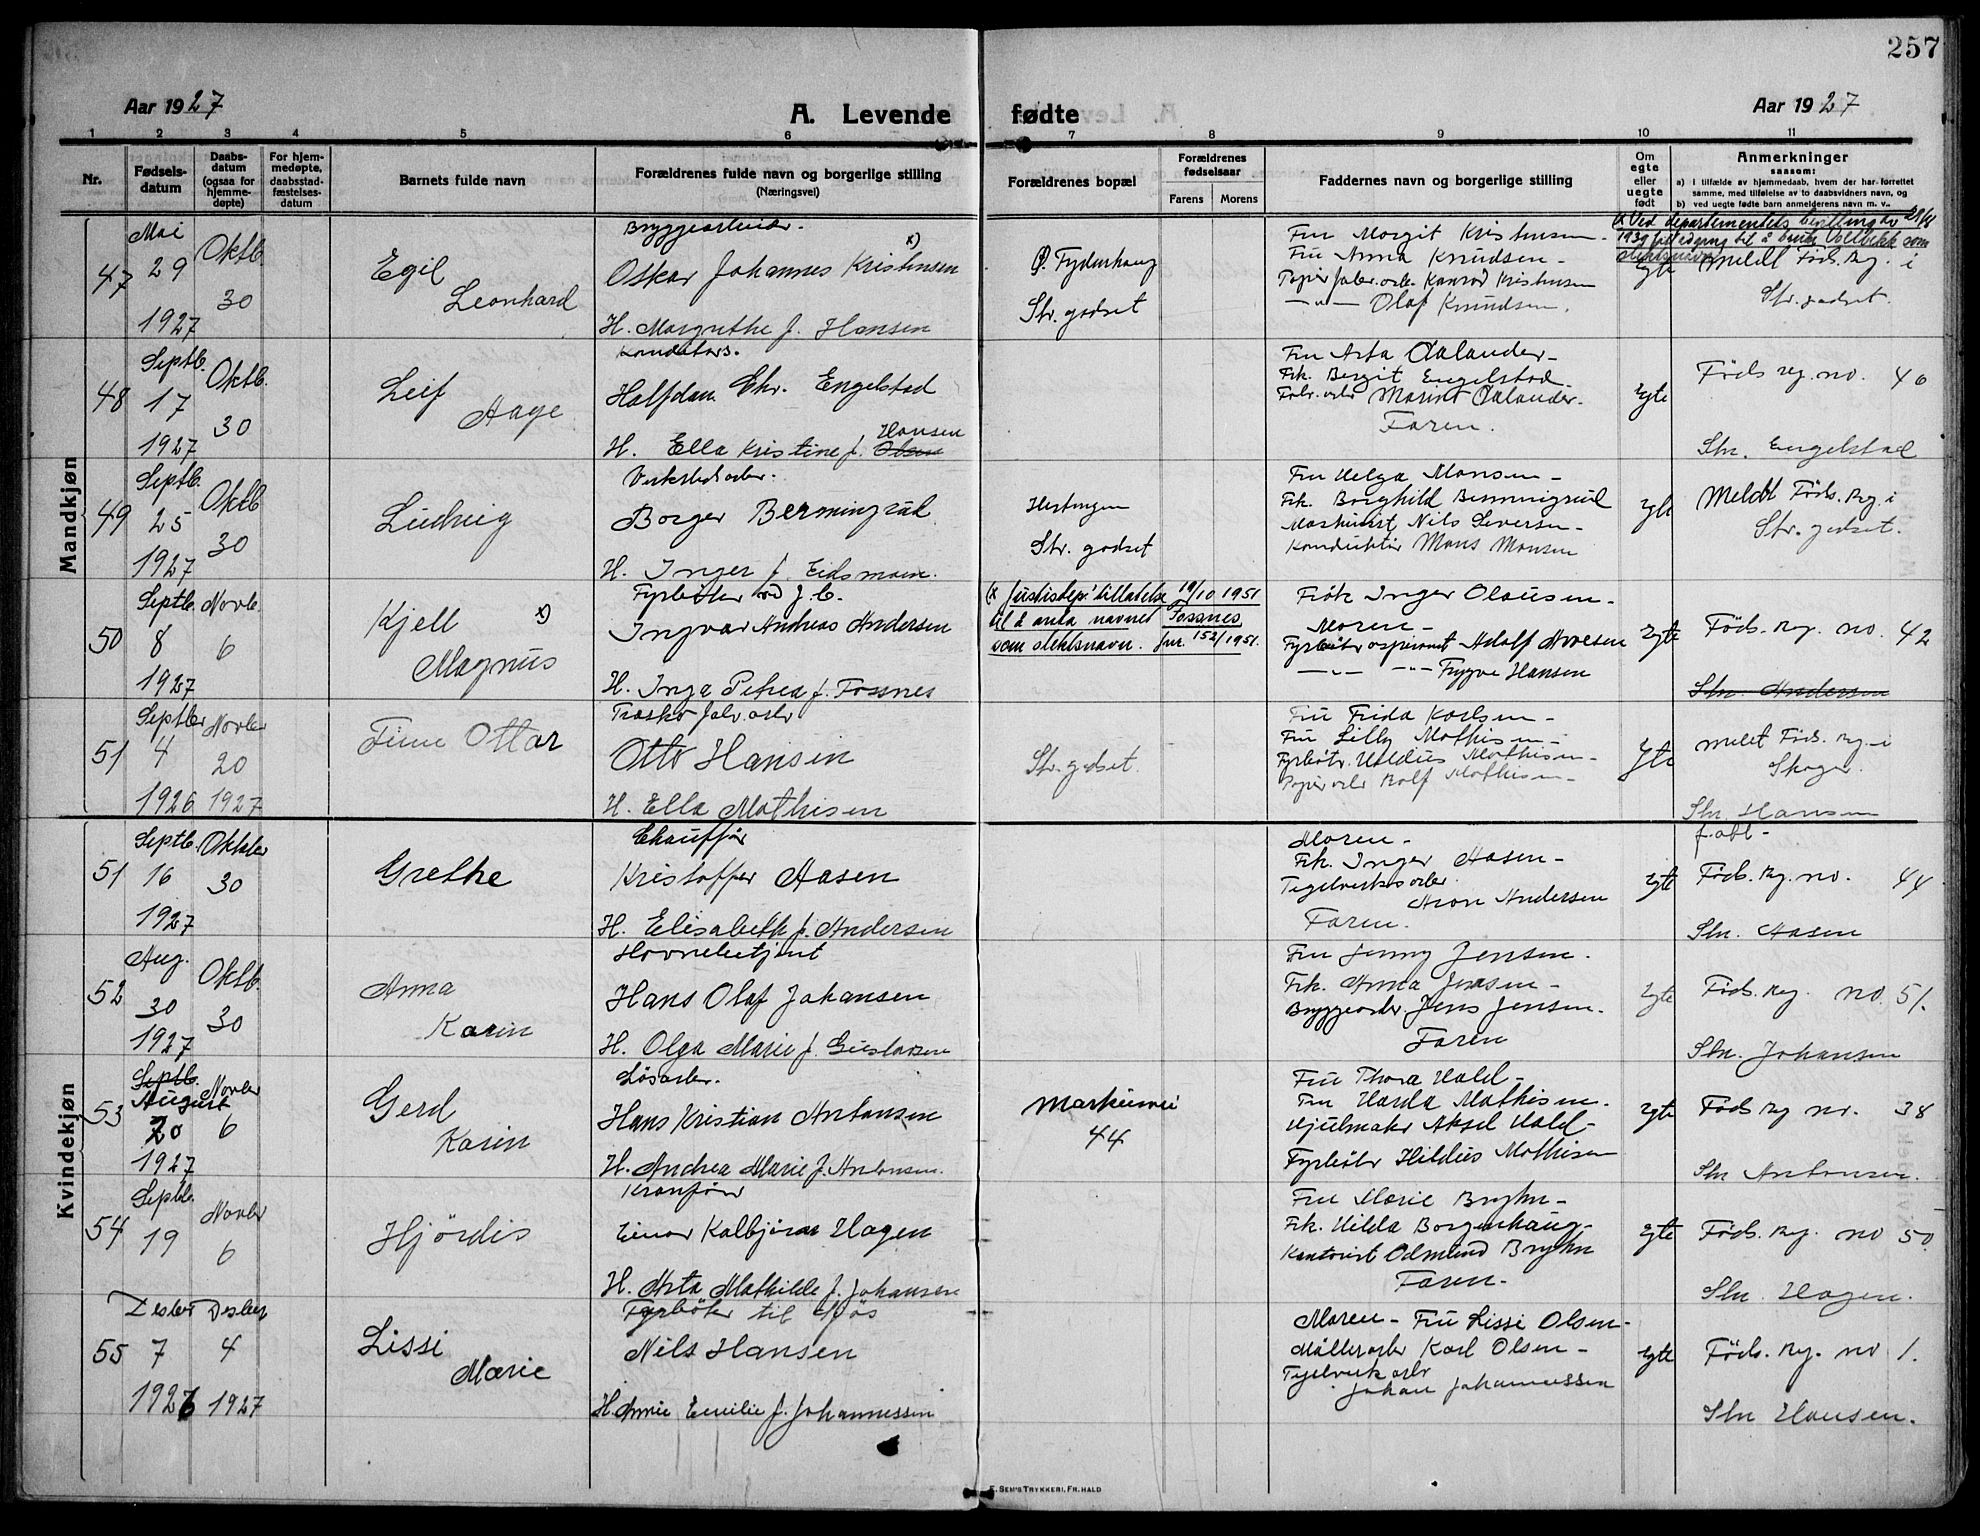 257
Aar 1927
A. Levende fødte
Aar 1927
1 2 3 4 5 6 7 8 9 10 11
Nr.
Fødsels-
datum
Daabs-
datum
(ogsaa for
hjemme-
døpte)
For hjem-
medøpte,
daabsstad-
fæstelses-
datum
Barnets fulde navn
Forældrenes fulde navn og borgerlige stilling
(Næringsvei)
Forældrenes bopæl
Forældrenes
fødselsaar
Farens Morens
Faddernes navn og borgerlige stilling
Om
egte
eller
uegte
født
Anmerkninger
saasom:
a) I tilfælde av hjemmedaab, hvem der har forrettet
samme, med tilføielse av to daabsvidners navn, og
b) ved uegte fødte barn anmelderens navn m. v.
Mandkjøn
47
Mai
29
1927
Oktb
30
Egil
Leonhard
Bryggearbeider.
Oskar Johannes Kristensen x)
H. Margrethe f. Hansen
Ø.
Str. godset
Fru Margit Kristensen -
Fru Anna Knudsen -
Konrad Kristensen
-"- Olaf Knudsen.
Egte
x Ved departementets
1939 til å bruke som
slektsnavn
Meldt Føds. Reg. i
Str. godset.
48
Septb.
17
1927
Oktb.
30
Leif
Aage
Halfdan Chr. Engelstad
H. Ella Kristine f. Hansen
Olsen
Fru Asta Aalander -
Frk. Bergit Engelstad -
Aalander -
Faren.
Egte
Føds reg. no. 40
Stn. Engelstad
49
Septb.
25
1927
Oktb
30
Ludvig
Verkstedarb.
Borger Bermingrud
H. Inger f. Eidsmoen.
Str. godset
Fru Helga Monsen -
Frk. Borghild Bermingrud
Maskinist Nils Seversen -
Konduktør Mons Monsen
Egte
Meldt Føds. Reg. i
Str. godset.
50
Septb.
8
1927
Novb.
6
Kjell x)
Magnus
Fyrbøter
Ingvar Andreas Andersen
H. Inga Petrea f. Fossnes
(x Justisdep. tillatelse 19/10 1951
til å anta navnet Fossnes
som slektsnavn. jnr. 152/1951.
Frök Inger Olausen -
Moren -
Fyrbøter aspirant Adolf
-"- -"- Trygve Hansen
Egte
Føds. Reg. no. 42
Stn. Andersen
51
Septbr
4
1926
Novbr
20
1927
Finn Ottar
Træsko fabr. arb
Otto Hansen
H. Ella Mathisen
Str. godset.
Fru Frida Karlsen -
Fru Lilly Mathisen -
Fyrbøt. Hildus Mathisen -
Papirarb Rolf Mathisen -
Egte
Meldt Føds. Reg. i
Skoger.
Stn. Hansen
Kvindekjøn
51
Septb.
16
1927
Oktober
30
Grethe
Chauffør
Kristoffer Aasen
H. Elisabeth f. Andersen
Moren -
Frk. Inger Aasen -
Tegelverksarb.
Aron Andersen
Faren.
Egte
Føds. Reg. no. 44
Stn. Aasen
52
Aug.
30
1927
Oktb.
30
Anna
Karin
Havnebetjent
Hans Olaf Johansen
H. Olga Marie f. Gustavsen
Fru Jenny Jensen.
Frk. Anna Jensen -
Bryggearb Jens Jensen.
Faren
Egte
Føds. Reg. no. 51.
Stn. Johansen
53
Septb.
August
20
1927
Novbr
6
Gerd
Karin
Løsarb.
Hans Kristian Antonsen
H. Andrea Marie f. Antonsen.
44
Fru Thora Hald -
Fru Harda Mathisen -
Hjulmaker Aksel Hald -
Fyrbøter Hildus Mathisen
Egte
Føds Reg nr. 38
Stn Antonsen.
54
Septb.
19
Novbr
6
Hjørdis
Kranfører
Einar Kalbjørn Hagen
H. Asta Mathilde f. Johansen
Fru Marie Bryhn -
Frk. Hilda Borgenhaug -
Kontorist Odmund Bryhn
Faren -
Egte
Føds. Reg. no 50
Stn Hagen.
55
Desbr
7
1926
Desber
4
1927
Lissi
Marie
Fyrbøter til sjøs
Nils Hansen
H. Annie Emilie f. Johannessen
Moren - Fru Lissi Olsen -
Møllerarb Karl Olsen -
Teglverk arb
Johan Johannessen
Egte
Føds. Reg. no 1.
Stn Hansen.
E. SEM'S TRYKKERI, FR. HALD